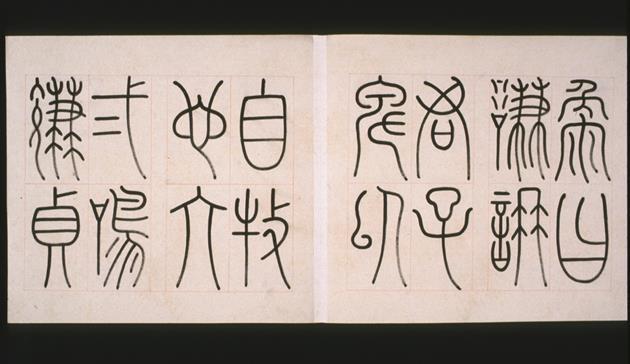 象曰
謙謙
君子
卑以
自牧
也六
弍鳴
謙貞